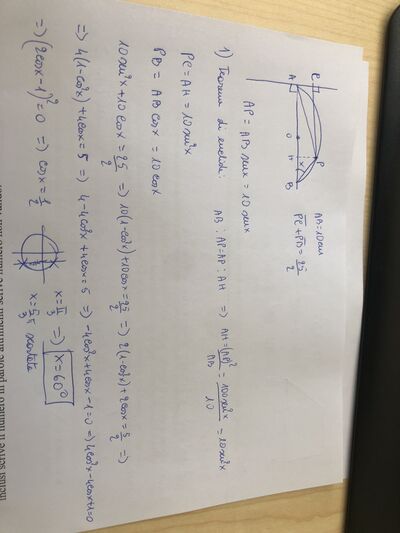 C
P
A
O
H
x
B
AB=10cm
PC+PB=25/2
AP = AB senx = 10 senx
1) Teorema di euclide: AB : AP=AP : AH => AH=(AP)²/AB = 100sen²x/10 = 10sen²x
PC=AH=10sen²x
PB = AB cosx = 10cosx
10sen²x+10cosx=25/2 => 10(1-cos²x)+10cosx=25/2 => 2(1-cos²x)+2cosx=5/2 =>
=> 4(1-cos²x)+4cosx=5 => 4-4cos²x+4cosx=5 => -4cos²x+4cosx-1=0 => 4cos²x-4cosx+1=0
=> (2cosx-1)²=0 => cosx=1/2
x=π/3 => x=60°
x=5/3π